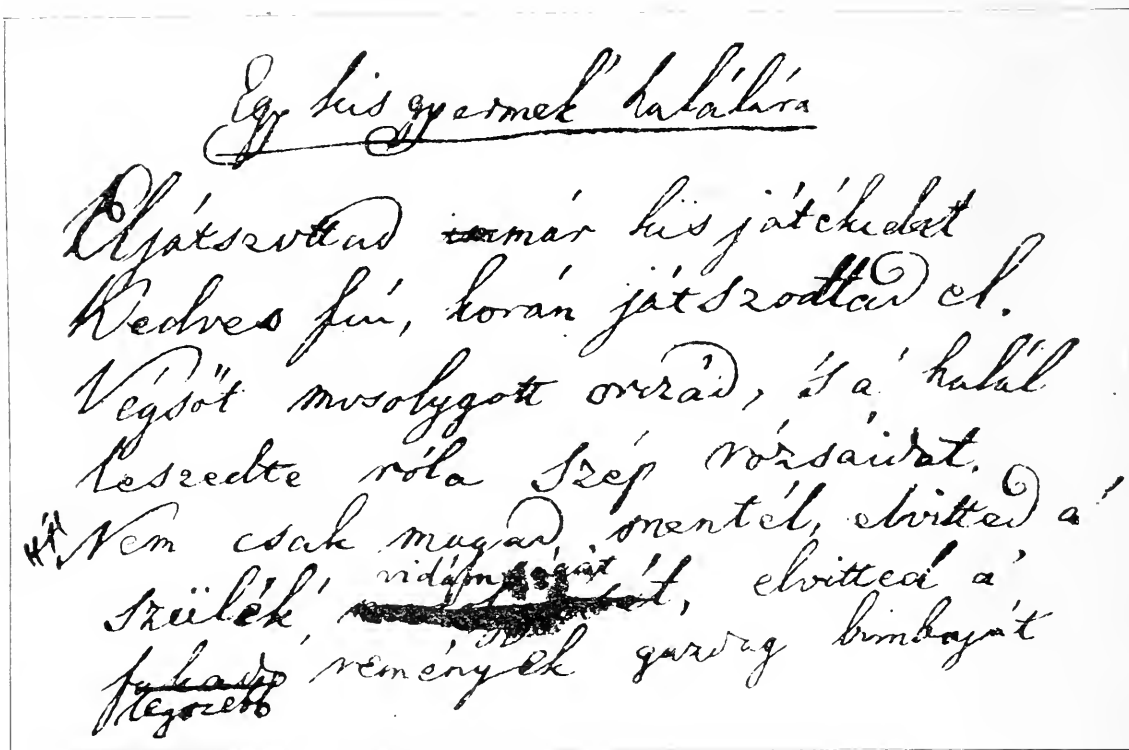 Egy kis gyermek' halálára
Eljátszottad már kis játékidat
Kedves fiú, korán játszodtad el.
Végsőt mosolygott orczád, 's a' halál
leszedte róla szép rózsáidat.
Nem csak magad mentél, elvitted a'
szülék' vidámságát, elvitted a'
fakadó remények gazdag bimbaját
legszebb